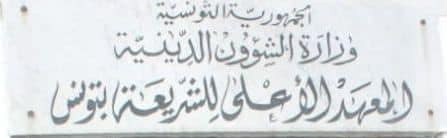 الجمهورية التونسية
وزارة الشؤون الدينية
المعهد الأعلى للشريعة بتونس